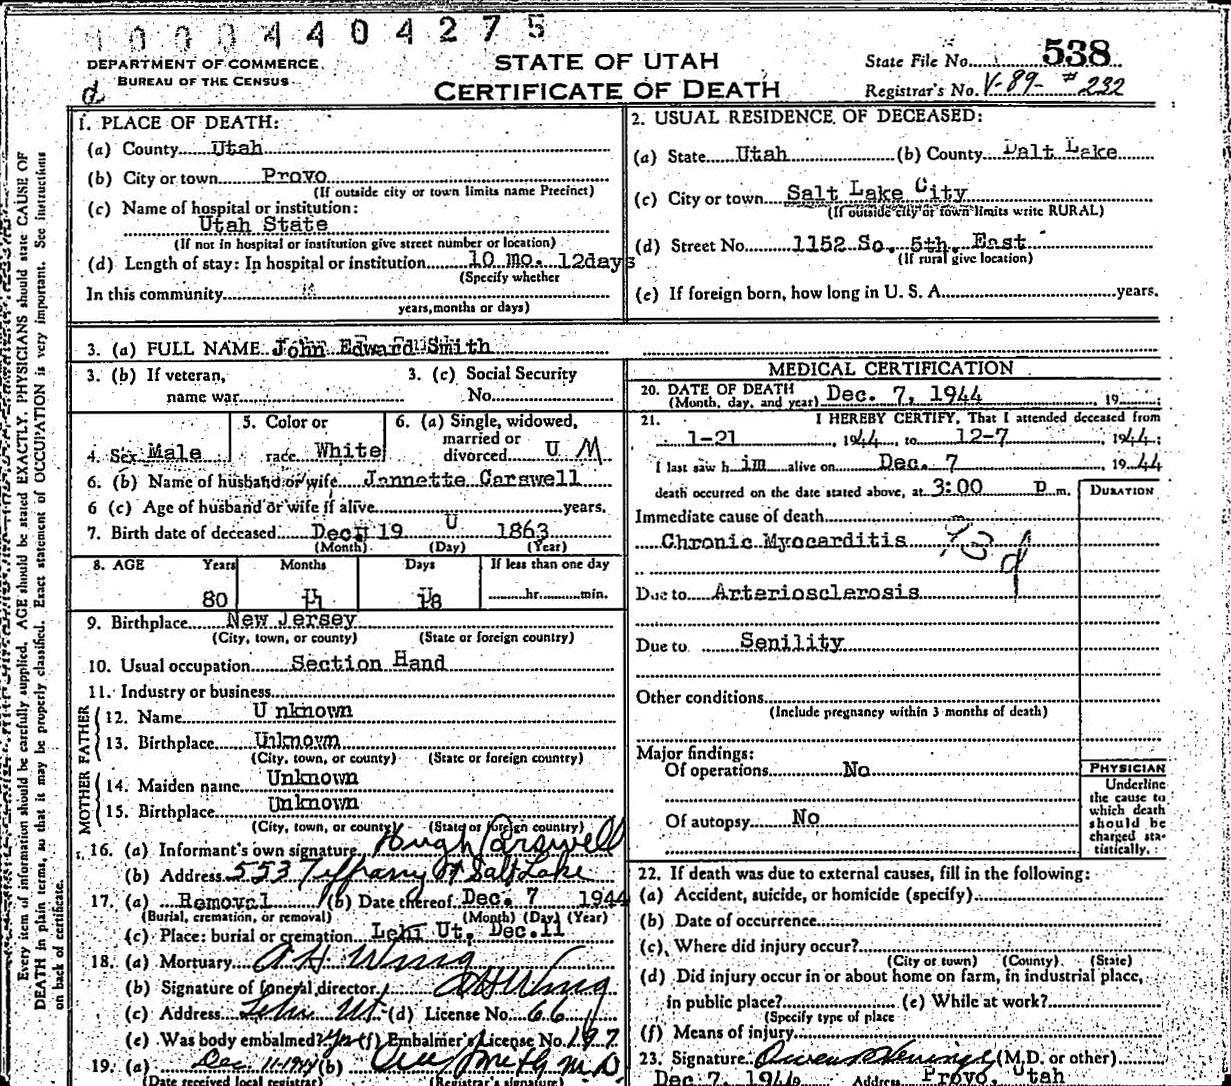 0000 4404275
DEPARTMENT OF COMMERCE
BUREAU OF THE CENSUS
d
STATE OF UTAH
CERTIFICATE OF DEATH
State File No. 538
Registrar's No. V-89- #232
1. PLACE OF DEATH:
(a) County Utah
(b) City or town Provo
(If outside city or town limits name Precinct)
(c) Name of hospital or institution:
Utah State
(If not in hospital or institution give street number or location)
(d) Length of stay: In hospital or institution 10 mo. 12days
(Specify whether
In this community
years, months or days)
2. USUAL RESIDENCE OF DECEASED:
(a) State Utah (b) County Salt Lake
(c) City or town Salt Lake City
(If outside city or town limits write RURAL)
(d) Street No. 1152 So. 5th. East
(If rural give location)
(e) If foreign born, how long in U. S. A. years.
3. (a) FULL NAME John Edward Smith
3. (b) If veteran,
name war
3. (c) Social Security
No.
4. Sex Male
5. Color or
race White
6. (a) Single, widowed,
married or
divorced U M
6. (b) Name of husband or wife Jannette Carswell
6 (c) Age of husband or wife if alive years.
7. Birth date of deceased Dec. 19 U 1863
(Month) (Day) (Year)
8. AGE Years Months Days If less than one day
80 11 18 hr. min.
9. Birthplace New Jersey
(City, town, or county) (State or foreign country)
10. Usual occupation Section Hand
11. Industry or business
FATHER
12. Name U nknown
13. Birthplace Unknown
(City, town, or county) (State or foreign country)
MOTHER
14. Maiden name Unknown
15. Birthplace Unknown
(City, town, or county) (State or foreign country)
16. (a) Informant's own signature Hugh Carswell
(b) Address 553 Tiffany Salt Lake
17. (a) Removal (b) Date thereof Dec. 7 1944
(Burial, cremation, or removal) (Month) (Day) (Year)
(c) Place: burial or cremation Lehi Ut, Dec.11
18. (a) Mortuary A H Wing
(b) Signature of funeral director A H Wing
(c) Address Lehi Ut. (d) License No. 66
(e) Was body embalmed? Yes (f) Embalmer's License No. 197
19. (a) Dec 11-1944 (b) Smith M.D.
(Date received local registrar) (Registrar's signature)
MEDICAL CERTIFICATION
20. DATE OF DEATH
(Month, day, and year) Dec. 7, 1944, 19
21. I HEREBY CERTIFY, That I attended deceased from
1-21, 1944, to 12-7, 1944;
I last saw h im alive on Dec. 7, 1944
death occurred on the date stated above, at 3:00 P m.
DURATION
Immediate cause of death
Chronic Myocarditis 93d
Due to Arteriosclerosis
Due to Senility
Other conditions
(Include pregnancy within 3 months of death)
Major findings:
Of operations No
Of autopsy No
PHYSICIAN
Underline
the cause to
which death
should be
charged sta-
tistically.
22. If death was due to external causes, fill in the following:
(a) Accident, suicide, or homicide (specify)
(b) Date of occurrence
(c) Where did injury occur?
(City or town) (County) (State)
(d) Did injury occur in or about home on farm, in industrial place,
in public place? (e) While at work?
(Specify type of place
(f) Means of injury
23. Signature (M.D. or other)
Dec 7, 1944 Address Provo, Utah
Every item of information should be carefully supplied. AGE should be stated EXACTLY. PHYSICIANS should state CAUSE OF
DEATH in plain terms, so that it may be properly classified. Exact statement of OCCUPATION is very important. See Instructions
on back of certificate.